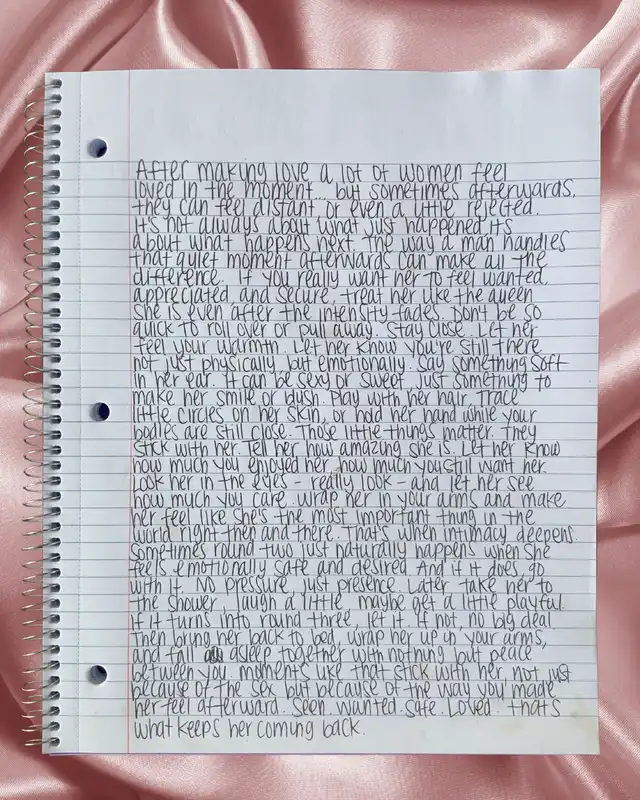 After making love a lot of women feel
loved in the moment.. but sometimes afterwards,
they can feel distant or even a little rejected.
It's not always about what just happened its
about what happens next. The way a man handles
that quiet moment afterwards can make all the
difference. If you really want her to feel wanted,
appreciated, and secure, treat her like the queen
she is even after the intensity fades. Don't be so
quick to roll over or pull away. Stay close. Let her
feel your warmth. Let her know you're still there
not just physically, but emotionally. Say something soft
in her ear. It can be sexy or sweet just something to
make her smile or blush. Play with her hair. Trace
little circles on her skin, or hold her hand while your
bodies are still close. Those little things matter. They
stick with her. Tell her how amazing she is. Let her know
how much you enjoyed her, how much you still want her.
Look her in the eyes - really look - and let her see
how much you care. Wrap her in your arms and make
her feel like she's the most important thing in the
world right then and there. That's when intimacy deepens.
Sometimes round two just naturally happens when she
feels emotionally safe and desired. And if it does, go
with it. No pressure, just presence. Later take her to
the shower, laugh a little, maybe get a little playful.
If it turns into round three, let it. If not, no big deal
Then bring her back to bed, wrap her up in your arms,
and fall asleep together with nothing but peace
between you. Moments like that stick with her, not just
because of the sex but because of the way you made
her feel afterward. Seen. Wanted. Safe. Loved. that's
what keeps her coming back.